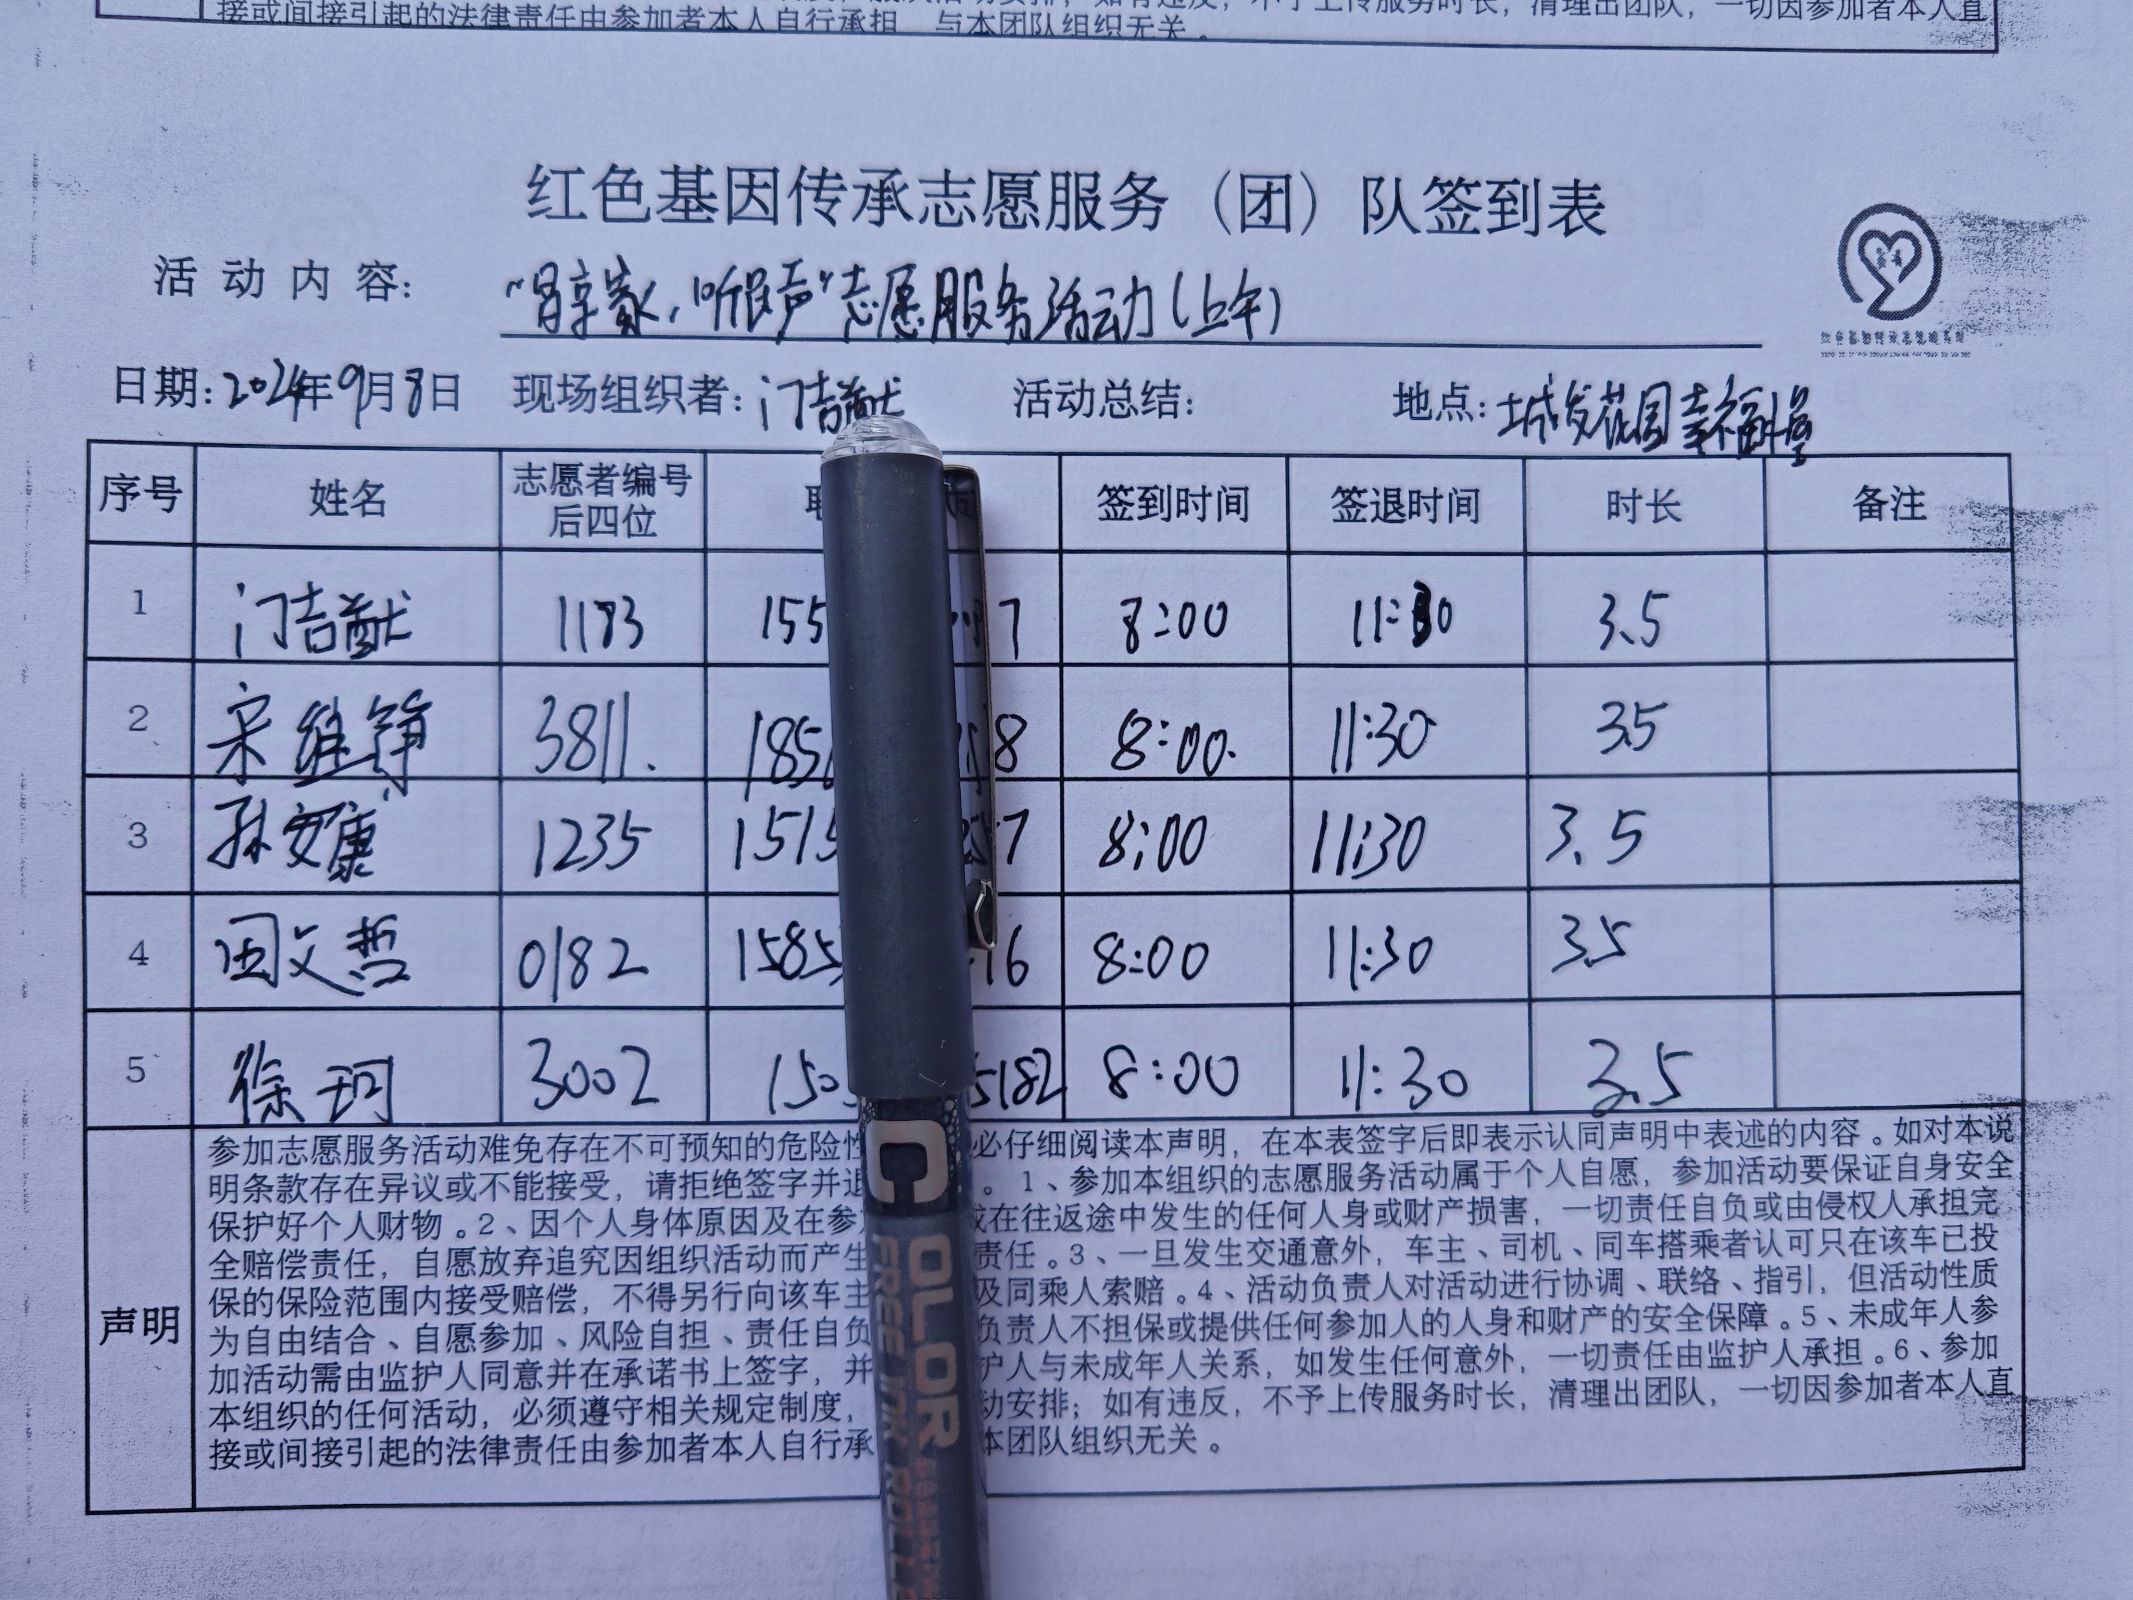 接或间接引起的法律责任由参加者本人自行承担，与本团队组织无关。
红色基因传承志愿服务（团）队签到表
活动内容：志愿服务活动(上午)
日期：2024年9月8日 现场组织者：门吉猷 活动总结： 地点：城发花园幸福
序号 姓名 志愿者编号后四位 签到时间 签退时间 时长 备注
1 门吉猷 1193 155 7 8:00 11:30 3.5
2 宋维铮 3811. 185 8 8:00. 11:30 3.5
3 孙安康 1235 1515 7 8:00 11:30 3.5
4 田文哲 0182 1585 16 8:00 11:30 3.5
5 徐珂 3002 150 5182 8:00 11:30 3.5
声明
参加志愿服务活动难免存在不可预知的危险性 必仔细阅读本声明，在本表签字后即表示认同声明中表述的内容。如对本说
明条款存在异议或不能接受，请拒绝签字并退 。1、参加本组织的志愿服务活动属于个人自愿，参加活动要保证自身安全
保护好个人财物。2、因个人身体原因及在参 或在往返途中发生的任何人身或财产损害，一切责任自负或由侵权人承担完
全赔偿责任，自愿放弃追究因组织活动而产生 责任。3、一旦发生交通意外，车主、司机、同车搭乘者认可只在该车已投
保的保险范围内接受赔偿，不得另行向该车主 及同乘人索赔。4、活动负责人对活动进行协调、联络、指引，但活动性质
为自由结合、自愿参加、风险自担、责任自负 负责人不担保或提供任何参加人的人身和财产的安全保障。5、未成年人参
加活动需由监护人同意并在承诺书上签字，并 护人与未成年人关系，如发生任何意外，一切责任由监护人承担。6、参加
本组织的任何活动，必须遵守相关规定制度， 动安排；如有违反，不予上传服务时长，清理出团队，一切因参加者本人直
接或间接引起的法律责任由参加者本人自行承 本团队组织无关。
COLOR
FREE INK ROLL